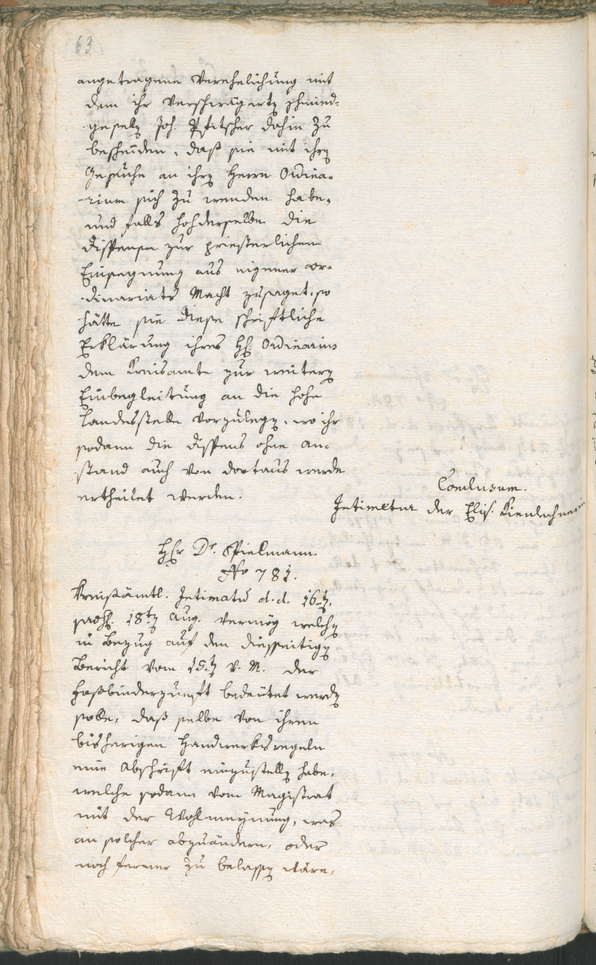 63
angetragene Verehelichung mit
dem ihr verschwägerten
Joh. Pfitscher dahin zu
bescheiden, daß sie mit ihrem
Gesuche an ihren Herrn Ordina-
rium sich zu wenden habe,
und falls hochderselbe die
Dispense zur priesterlichen
Einsegnung aus eigener or-
dinariats Macht zusaget, so
hätte sie diese schriftliche
Erklärung ihres H: Ordinarius
dem Kreisamte zur weitern
Einbegleitung an die hohe
Landesstelle vorzulegen, wo ihr
sodann die Dispens ohne An-
stand auch von dortaus werde
ertheilet werden.
Conclusum.
Intimetur der Elis. Kienlechnerin
Hr Dr. Spielmann.
No 781.
Kreisämtl. Intimatum d. d. 16ten,
praes. 18ten Aug. vermög welchen
in Bezug auf den diesseitigen
Bericht vom 15ten v. M. der
Faßbinderzunft bedeutet werden
solle, daß selbe von ihren
bisherigen Handwerksregeln
eine Abschrift einzustellen habe,
welche sodann vom Magistrat
mit der Wohlmeynung, was
an solcher abzuändern, oder
noch ferner zu belassen wäre,